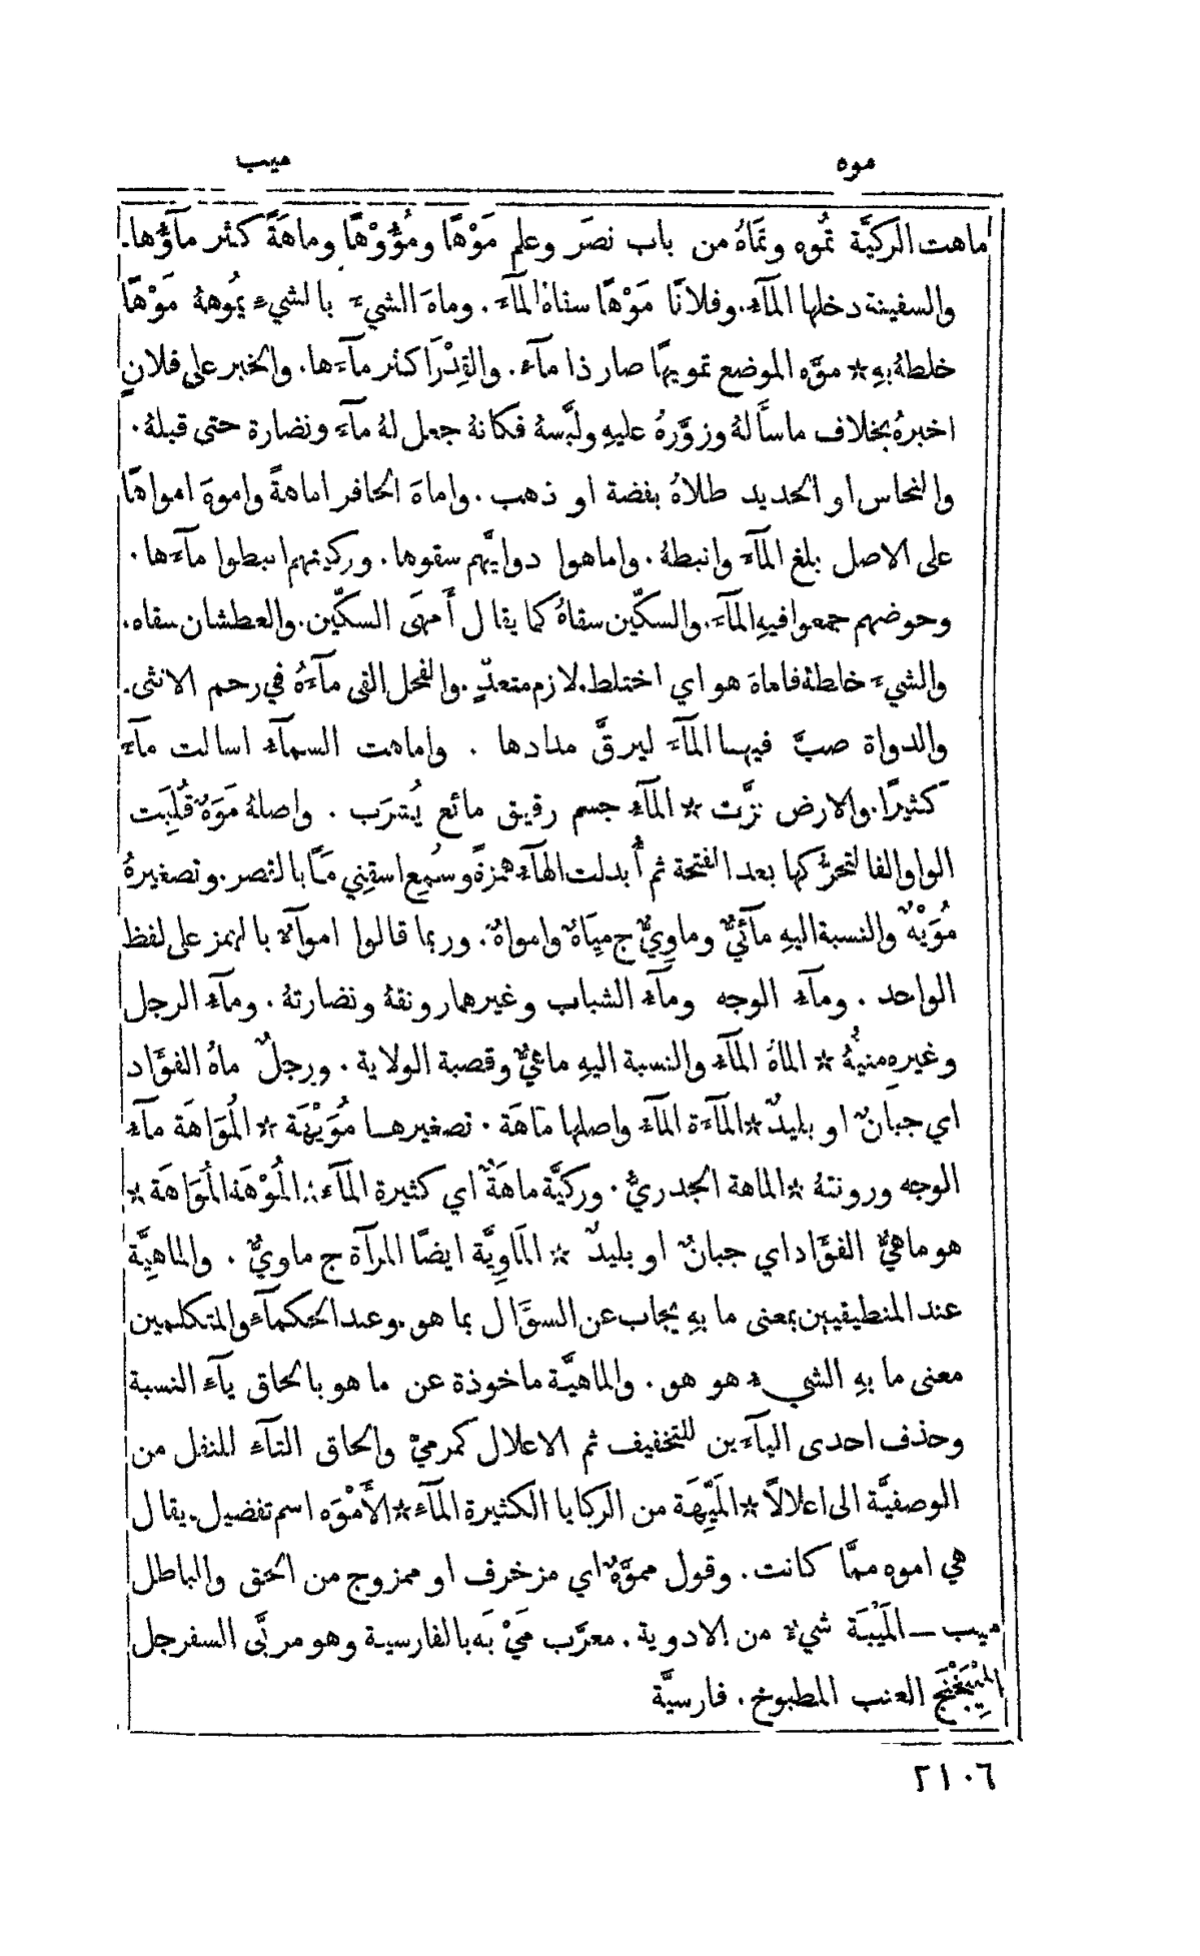 موه
ميب
ماهت الركيَّة تُموه وتَماهُ من باب نصَر وعلم مَوْهًا ومُؤُوْهًا وماهَةً كثر مآؤُها.
والسفينة دخلها المآء. وفلانًا مَوْهًا سقاهُ المآء. وماهَ الشيءَ بالشيءِ يَموههُ مَوْهًا
خلطهُ بهِ * موَّه الموضع تمويهًا صار ذا مآء. والقِدْرَ اكثر مآءها. والخبر على فلانٍ
اخبرهُ بخلاف ما سأَلهُ وزوَّرهُ عليهِ ولبَّسهُ فكانهُ جعل لهُ مآء ونضارة حتى قبلهُ.
والنحاس او الحديد طلاهُ بفضة او ذهب. واماهَ الحافر اماهةً واموهَ امواهًا
على الاصل بلغ المآء وانبطهُ. واماهوا دوابَّهم سقوها. وركيتهم انبطوا مآءها.
وحوضهم جمعوا فيهِ المآء. والسكّين سقاهُ كما يقال أَمهَى السكّين. والعطشان سقاه.
والشيءَ خلطهُ فاماهَ هو اي اختلط. لازم متعدٍّ. والفحل القى مآءهُ في رحم الانثى.
والدواة صبَّ فيها المآء ليرقَّ مدادها . واماهت السمآء اسالت مآء
كثيرًا. والارض نزَّت * المآء جسم رقيق مائع يُشرَب . واصلهُ مَوَهٌ قُلِبَت
الواو الفا لتحرُّكها بعد الفتحة ثم أُبدلت الهآء همزةً وسُمِع اسقِني مًا بالقصر. وتصغيرهُ
مُوَيْهٌ والنسبة اليهِ مآئيٌّ وماوِيٌّ ج مِيَاهٌ وامواهٌ. وربما قالوا اموآءٌ بالهمز على لفظ
الواحد . ومآء الوجه ومآء الشباب وغيرهما رونقهُ ونضارتهُ. ومآء الرجل
وغيرهِ منيُّهُ * الماهُ المآء والنسبة اليهِ ماهيٌّ وقصبة الولاية. ورجلٌ ماهُ الفؤَاد
اي جبانٌ او بليدٌ * المآءة المآء واصلها مَاهَة. تصغيرها مُوَيْهَة * المُوَاهَة مآء
الوجه ورونقهُ * الماهة الجدريُّ. وركيَّة ماهَةٌ اي كثيرة المآء * المُوْهَة المُوَاهَة *
هو ماهيُّ الفؤَاد اي جبانٌ او بليدٌ * المَاوِيَّة ايضًا المرآة ج ماويٌّ. والماهِيَّة
عند المنطيقيين بمعنى ما بهِ يجاب عن السؤَال بما هو. وعند الحكمآء والمتكلمين
معنى ما بهِ الشيء هو هو. والماهيَّة ماخوذة عن ما هو بالحاق يآء النسبة
وحذف احدى اليآءين للتخفيف ثم الاعلال كمرميّ والحاق التآء للنقل من
الوصفيَّة الى اعلالاً * المَيِّهَة من الركايا الكثيرة المآء * الأَمْوَه اسم تفضيل. يقال
هي اموه ممَّا كانت. وقول مموَّهٌ اي مزخرف او ممزوج من الحق والباطل
ميب — المَيْبَة شيءٌ من الادوية. معرَّب مَيْ بَه بالفارسية وهو مربَّى السفرجل
المِيْبَخْتَج العنب المطبوخ. فارسيَّة
٢١٠٦